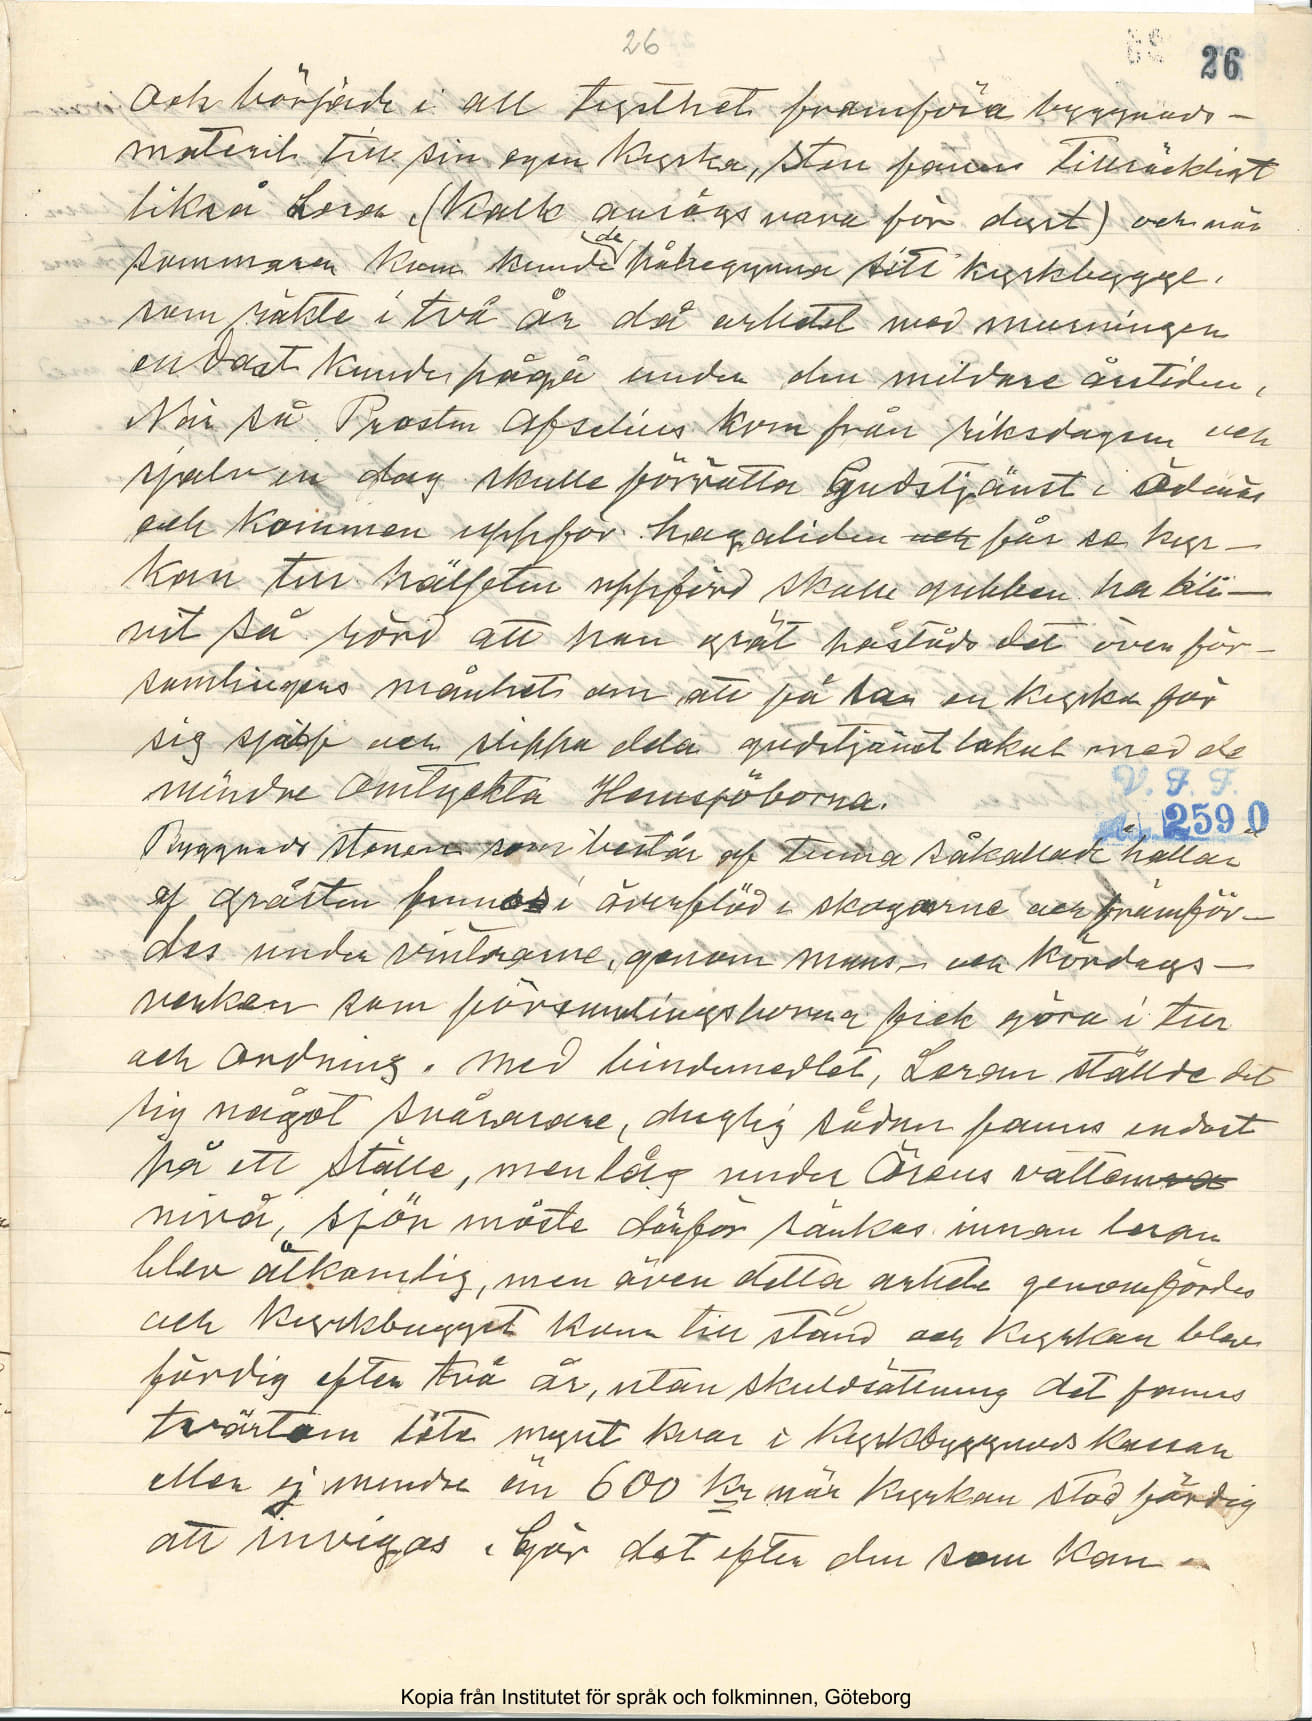 26
26
och började i all tysthet framföra byggnads-
materil till sin egen kyrka, Sten fanns tillräckligt
likså Lera, (Kalk ansågs vara för dyrt) och när
sommaren kom kunde de påbegynna sitt kyrkbygge.
som räkte i två år då arbetet med murningen
endast kunde pågå under den mildare årstiden,
När så Prosten Afselius kom från riksdagen och
sjalv en dag skulle förrätta Gudstjänst i Ödenäs
och kommen uppför hagaliden och får se kyr-
kan till hälften uppförd skulle gubben ha bli-
vit så rörd att han grät påstods det över för-
samlingens månhet om att få en kyrka för
sig själf och slippa dela gudstjänstlokal med de
mindre omtyckta Hemsjöborna.
V. F. F.
2590
Byggnads stenen som består af tunna såkallade hallar
af gråsten funnos i överflöd i skogarne och framför-
des under vintrarne, genom mans- och kördags-
verken som församlingsborna fick göra i tur
och ordning. Med bindemedlet, Leran ställde det
sig något svårarare, duglig sådan fanns endast
på ett ställe, men låg under Örens vatten
nivå, sjön måste därför sänkas innan leran
blev åtkomlig, men även detta arbete genomfördes
och kyrkbygget kom till stånd och kyrkan blev
färdig efter två år, utan skuldsättning det fanns
tvärtom mynt kvar i kyrkbyggnads kassan
eller ej mindre än 600 kr när kyrkan stod färdig
att invigas. Gör det efter den som kan -
Kopia från Institutet för språk och folkminnen, Göteborg